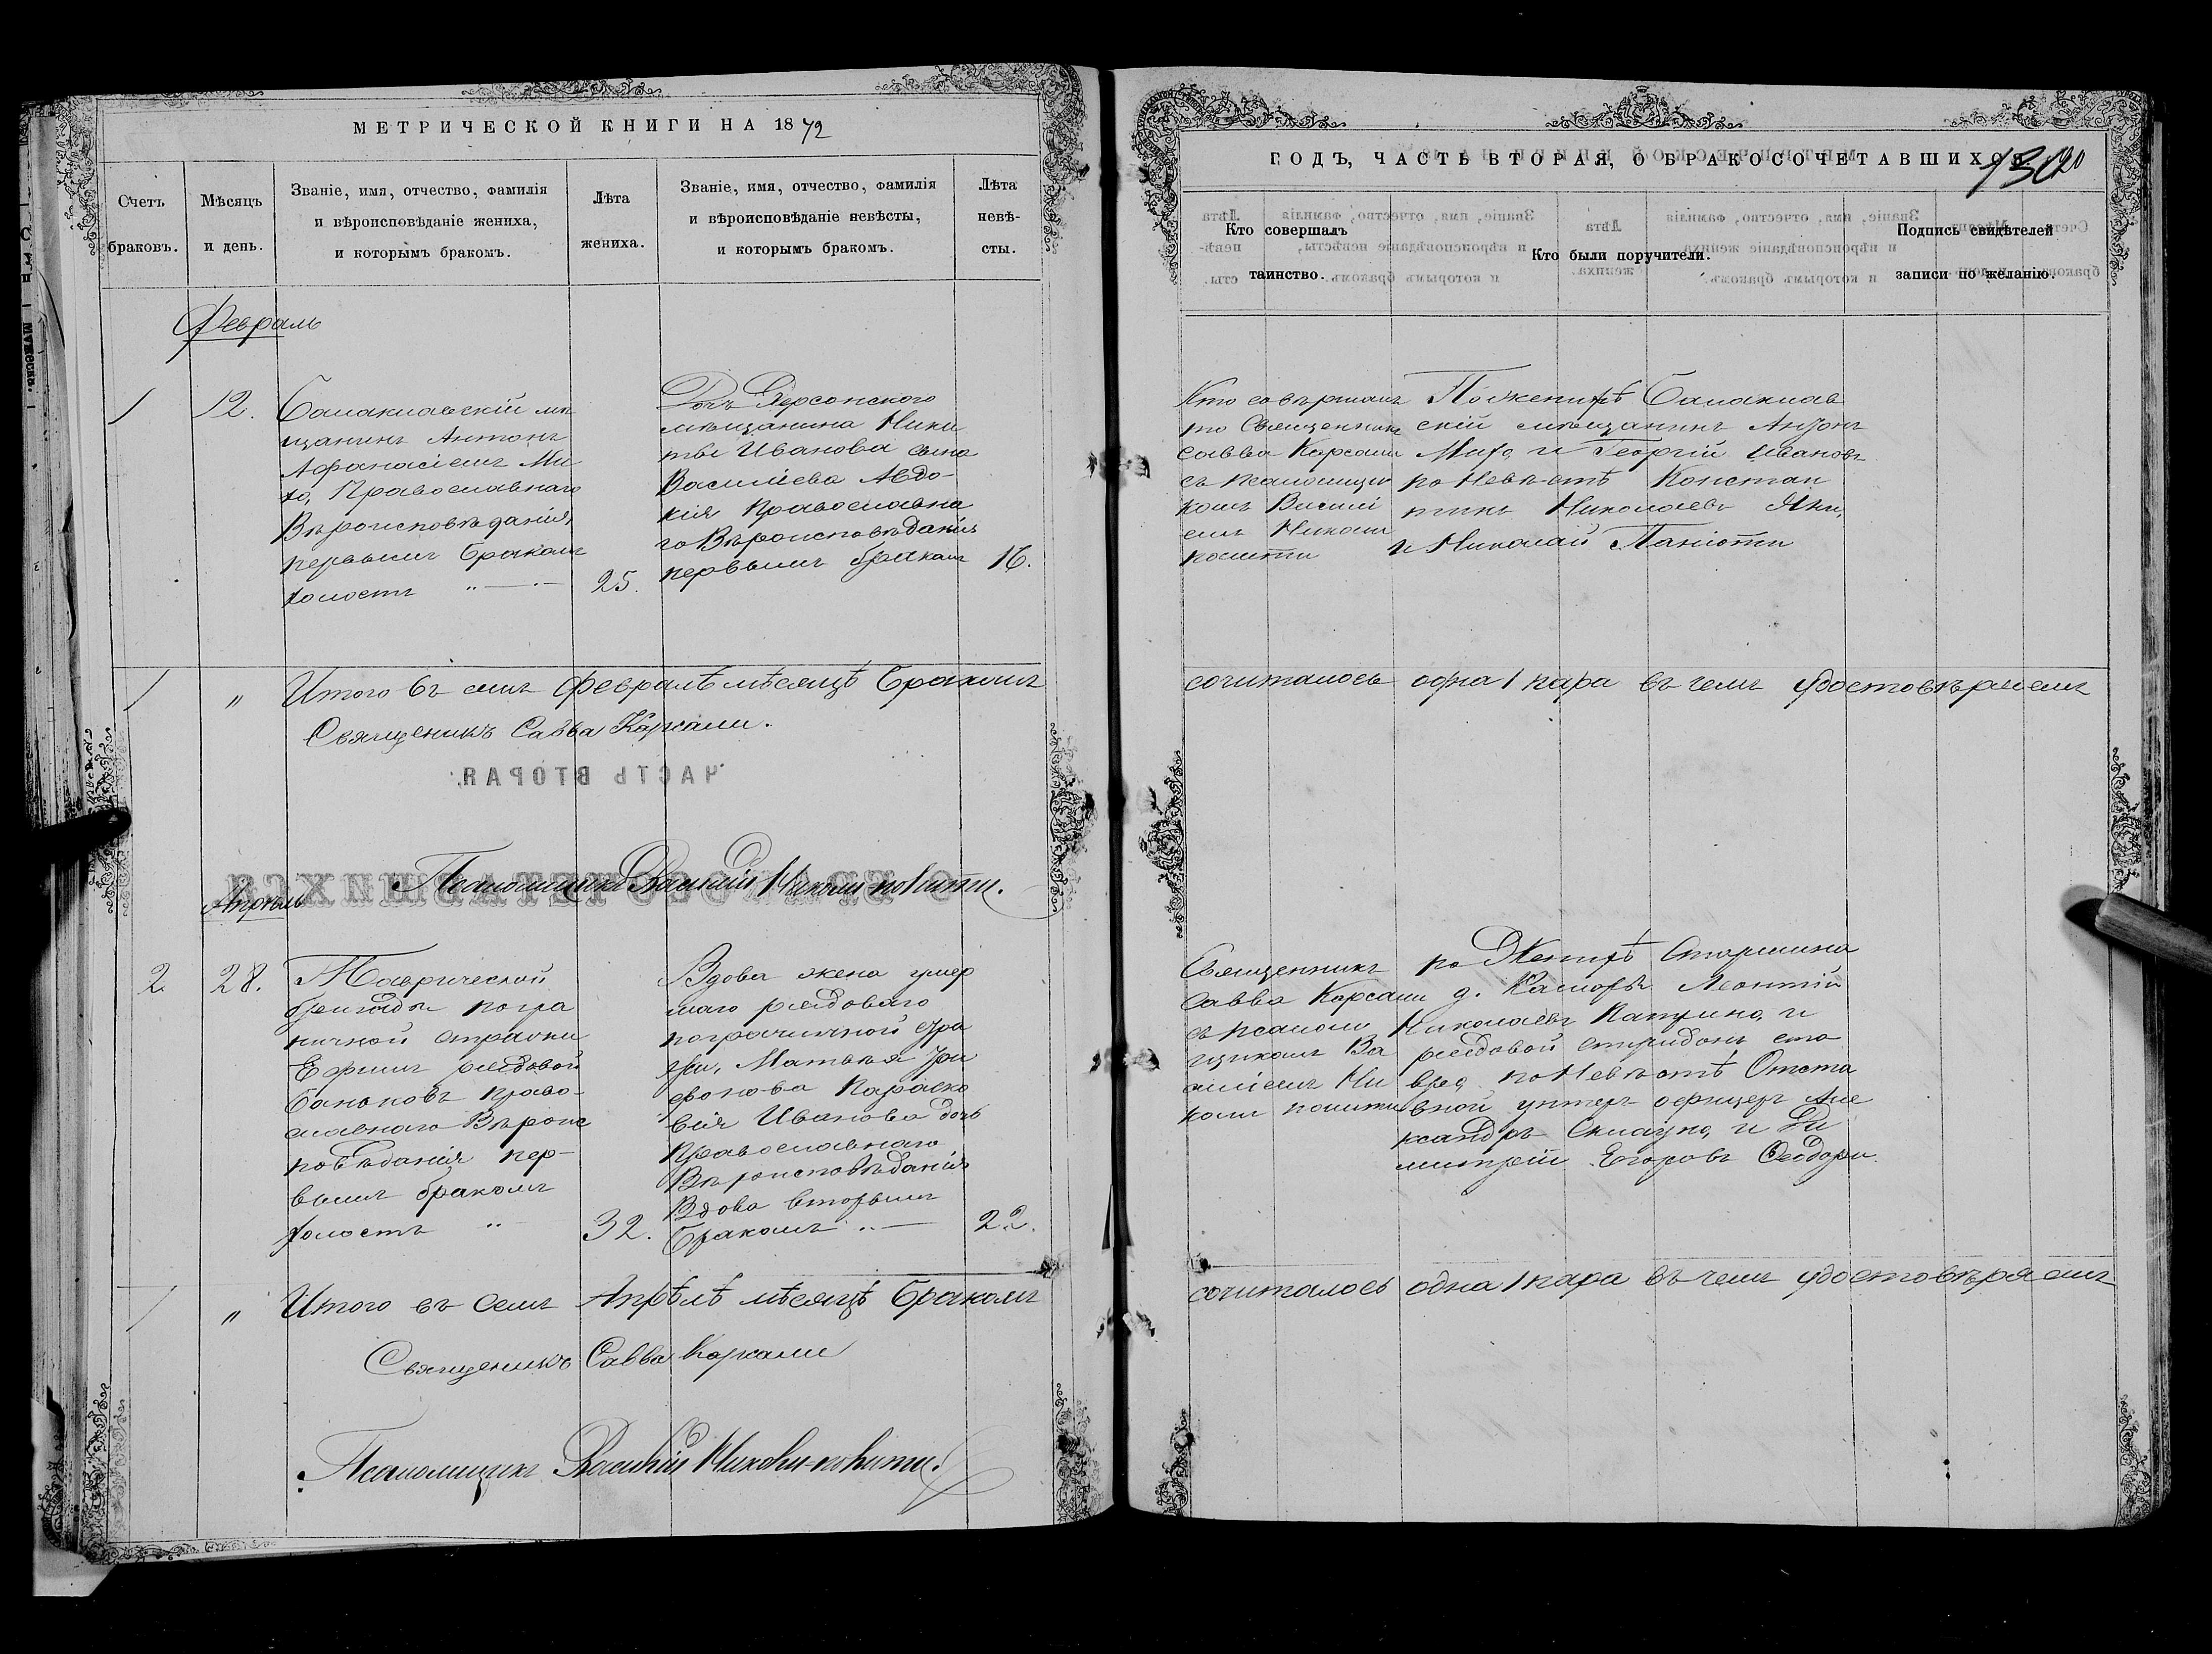 МЕТРИЧЕСКОЙ КНИГИ НА 1872
Счетъ браковъ.
Мѣсяцъ и день.
Званіе, имя, отчество, фамилія
и вѣроисповѣданіе жениха,
и которымъ бракомъ.
Лѣта
жениха.
Званіе, имя, отчество, фамилія
и вѣроисповѣданіе невѣсты,
и которымъ бракомъ.
Лѣта
невѣ-
сты.
Февраль
1
12.
Балаклавскій мѣ
щанинъ Антонъ
Афанасіевъ
Православнаго
Вѣроисповѣданія,
первымъ бракомъ
холостъ
25.
Дочь Херсонского
мѣщанина Ники
ты Иванова сына
Василіева Авдо-
кія Православна
го Вѣроисповѣданія
первымъ бракомъ
16.
1 " Итого въ семъ февралѣ мѣсяцѣ бракомъ
Священикъ Савва Карсами.
ЧАСТЬ ВТОРАЯ.
О БРАКОСОЧЕТАВШИХСЯ
Псаломщикъ Василій
Апрѣль
2
28.
Таврической
бригады погра
ничной стражи
Ефимъ рядовой
Банаковъ Право-
славнаго Вѣроис
повѣданія пер-
вымъ бракомъ
холостъ "
32.
Вдова жена умер
шаго рядоваго
пограничной стра
жи, Матвѣя
Параско
вія Иванова дочь
Православнаго
Вѣроисповѣданія
Вдова вторымъ
бракомъ
22.
1 " Итого въ семъ Апрѣлѣ мѣсяцѣ бракомъ
Священикъ Савва Карсами
Псаломщикъ Василій
ГОДЪ, ЧАСТЬ ВТОРАЯ, О БРАКОСОЧЕТАВШИХСЯ
Кто совершалъ
таинство.
Кто были поручители.
Подпись свидѣтелей
записи по желанію.
Кто совершалъ
то Священникъ
Савва Карсами
съ псаломщи
комъ Васили
емъ Николи
политти
По женихѣ Балаклав
скій мѣщанинъ Антонъ
и Георгій Ивановъ
по Невѣстѣ Констан
тинъ Николаевъ
и Николай Паніотти
сочиталось одна 1 пара въ чемъ удостовѣряемъ
Священникъ
Савва Карсами
съ псалом
щикомъ Ва
силіемъ Ни
коли политти
по Женихѣ Старшина
д. Камары Леонтій
Николаевъ и
рядовой Спиридонъ
по Невѣстѣ Отста
вной унтеръ офицеръ Але
ксандръ и Ди
митрій Егоровъ Феодори.
сочиталось одна 1 пара въ чемъ удостовѣряемъ